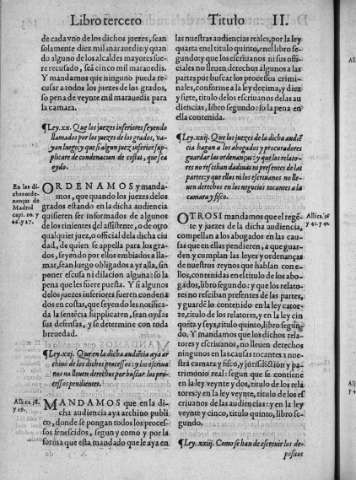 Libro tercero
Titulo II.
de cada vno de los dichos juezes, sean
solamente diez mil marauedis: y quan
do alguno de los alcaldes mayores fue
re recusado, sea cinco mil marauedis.
Y mandamos que ninguno pueda re-
cusar a todos los juezes de los grados,
so pena de veynte mil marauedis para
la camara.
¶ Ley.xx. Que los juezes inferiores seyendo
llamados por los juezes de los grados, va-
yan luego: y que si algun juez inferior sup-
plicare de condenacion de costas, que sea
oydo.
En las di-
chas orde-
nanças de
Madrid
ORDENAMOS y manda-
mos, que quando los juezes delos
grados estando en la dicha audiencia
quisieren ser informados de algunos
de los tinientes del assistente, o de otro
qualquier juez, o official dela dicha ciu
dad, de quien se apella para los gra-
dos, seyendo por ellos embiados a lla-
mar, sean luego obligados a yr alla, sin
poner escusa ni dilacion alguna: so la
pena que les fuere puesta. Y si algunos
delos juezes inferiores fueren condena
dos en costas, que seyendo les notifica-
da la sentẽcia supplicaren, sean oydos
sus defensas, y se determine con toda
breuedad.
¶ Ley.xxj. Que en la dicha audiẽcia aya ar
chiuo de los dichos processos: y los escriua
nos no lleuen derechos por buscar los pro-
cessos pendientes.
MANDAMOS que en la di-
cha audiencia aya archiuo publi
co, donde se pongan todos los proces-
sos fenescidos, segun y como y por la
forma que esta mandado que le aya en
las nuestras audiencias reales, por la ley
quarta en el titulo quinto, en el libro se-
gundo: y que los escriuanos ni sus offi-
ciales no lleuen derechos algunos a las
partes por buscar los processos crimi-
nales, conforme a la ley decima, y diez
y siete, titulo de los escriuanos de las au
diencias, libro segundo: so la pena en
ella contenida.
¶ Ley.xxij. Que los juezes de la dicha audiẽ
cia hagan a los abogados y procuradores
guardar las ordenanças: y que los relato-
res no resciban dadiuas ni presentes de las
partes: y que ellos ni los escriuanos no lle-
uen derechos en los negocios tocantes a la
camara y fisco.
OTROSI mandamos que el regẽ-
te y juezes de la dicha audiencia,
compellan a los abogados en las cau-
sas que en ellas pendieren, a que guar-
den y cumplan las leyes y ordenanças
de nuestros reynos que hablan con e-
llos, contenidas en el titulo de los abo-
gados, libro segundo: y que los relato-
res no resciban presentes de las partes,
y guardẽ lo contenido en la ley cator-
ze, titulo de los relatores, y en la ley cin
quẽta y seys, titulo quinto, libro segun
do. Y mandamos que los dichos rela-
tores y escriuanos, no lleuen derechos
ningunos en las causas tocantes a nue-
stra camara y fisco, y jurisdicion y pa-
trimonio real: segun que se contiene
en la ley veynte y dos, titulo de los re-
latores: y en la ley treynta, titulo de los es
criuanos de las audiencias: y en la ley
veynte y cinco, titulo quinto, libro se-
gundo.
¶ Ley.xxiij. Como se han de escreuir los de-
posicio